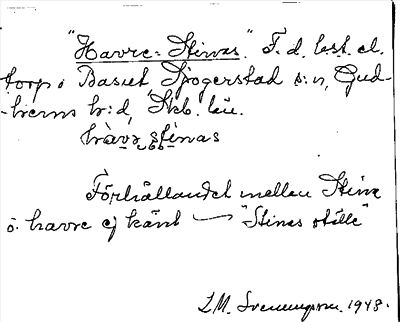 "Havre-Stinas". F. d. best. el.
torp å Basut, Sjogerstad s:n, Gud-
-hems h:d, Skb. län.
hàvrə stìnas
Förhållandet mellan Stina
o. havre ej känt — "Stinas ställe"
L.M. Svenungsson 1948.